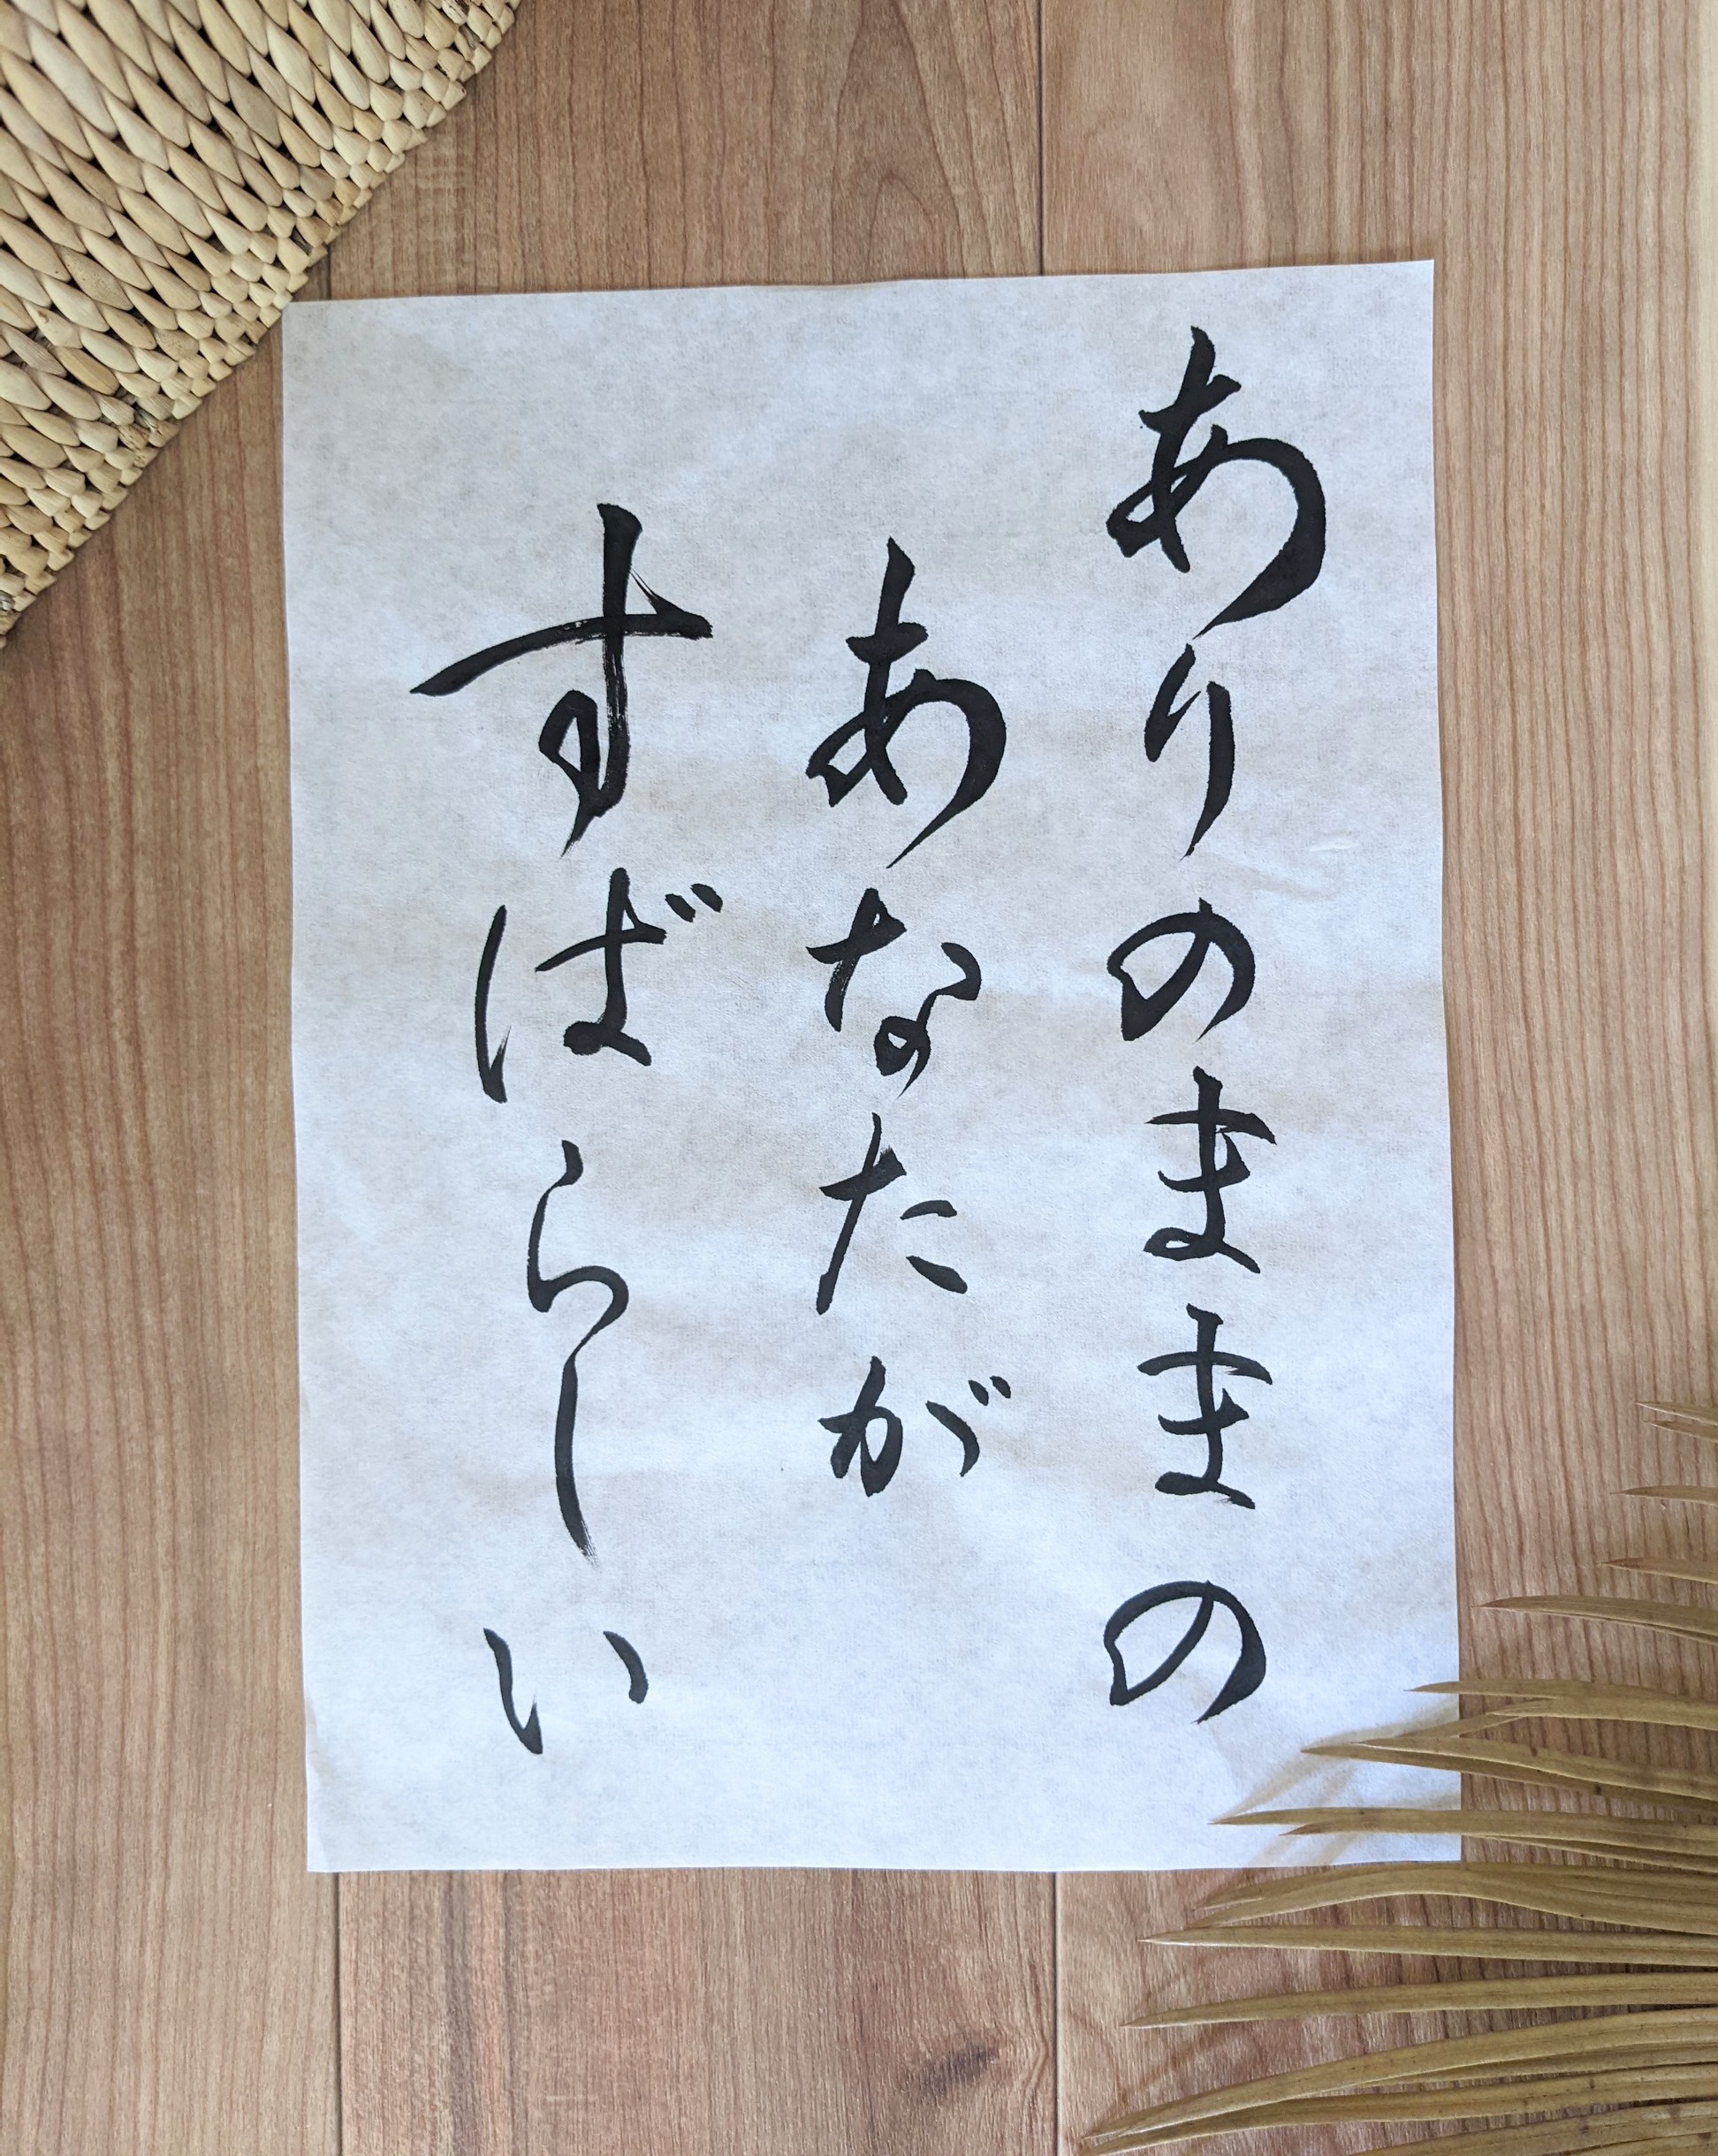 ありのままの
あなたが
すばらしい